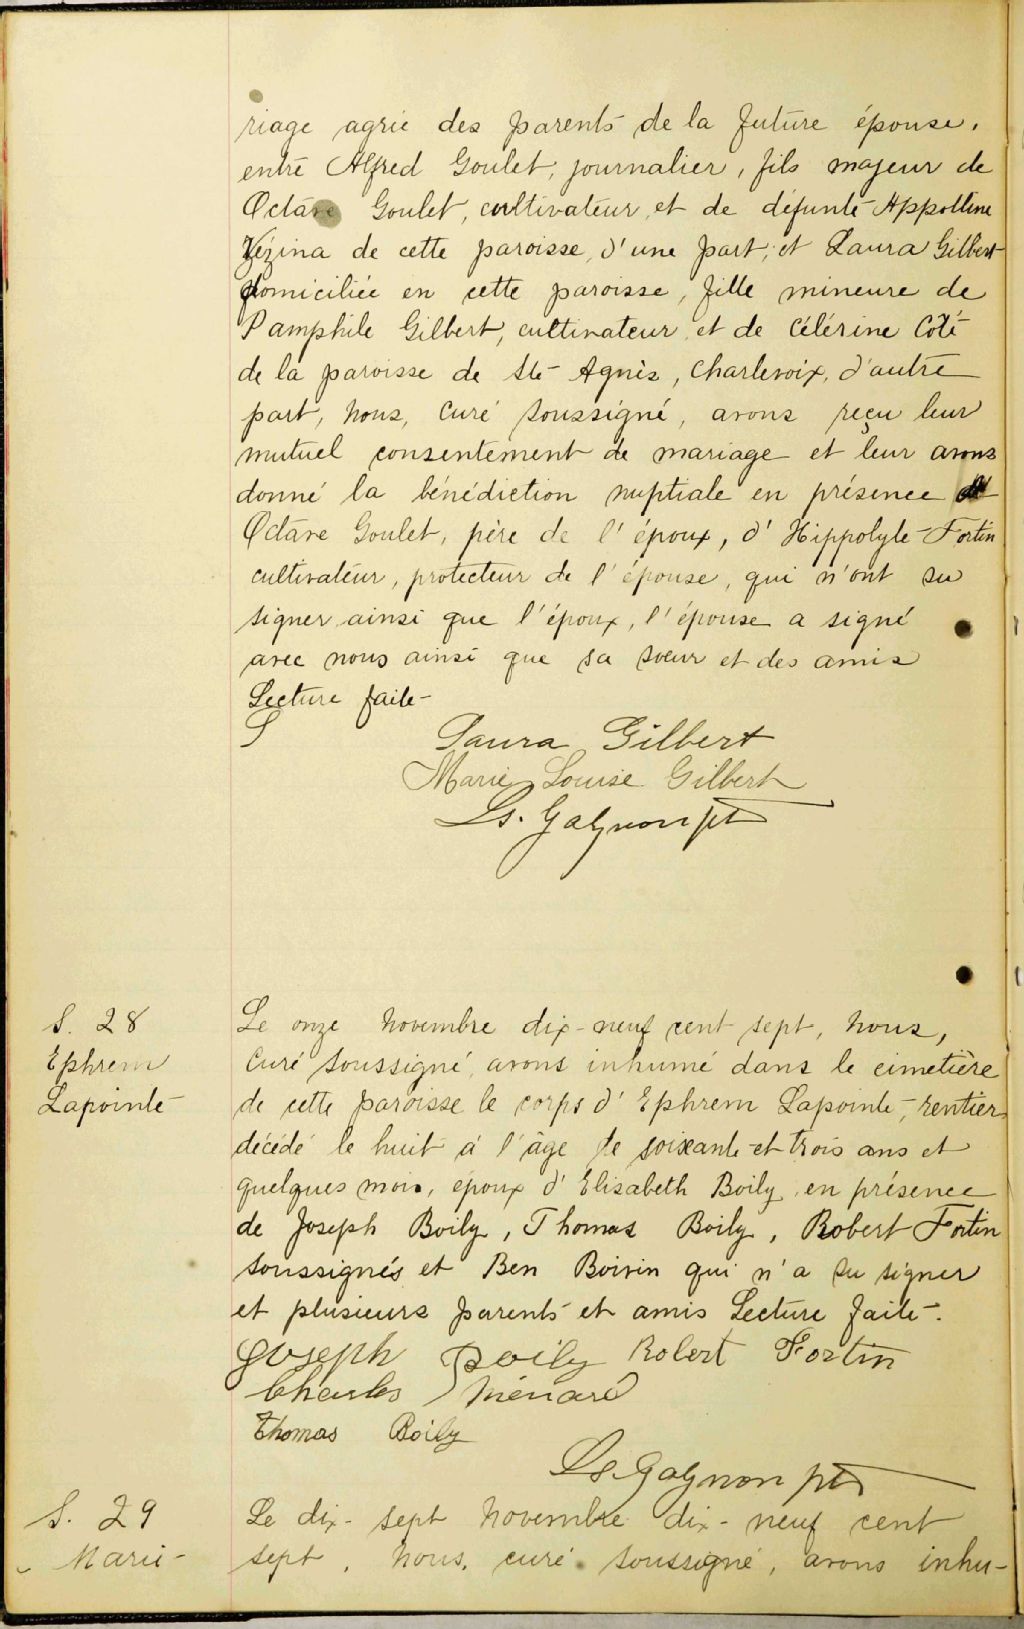 riage agrée des parents de la future épouse,
entre Alfred Goulet, journalier, fils majeur de
Octave Goulet, cultivateur, et de défunte Appolline
Vézina de cette paroisse, d'une part, et Laura Gilbert
domiciliée en cette paroisse, fille mineure de
Pamphile Gilbert, cultivateur et de Célérine Côté
de la paroisse de Ste Agnès, Charlevoix, d'autre
part, nous, curé soussigné, avons reçu leur
mutuel consentement de mariage et leur avons
donné la bénédiction nuptiale en présence
Octave Goulet, père de l'époux, d'Hippolyte Fortin
cultivateur, protecteur de l'épouse, qui n'ont su
signer ainsi que l'époux, l'épouse a signé
avec nous ainsi que sa soeur et des amis
Lecture faite
Laura Gilbert
Marie Louise Gilbert
Ls. Gagnon ptr
S. 28
Ephrem
Lapointe
Le onze novembre dix-neuf cent sept, nous,
curé soussigné, avons inhumé dans le cimetière
de cette paroisse le corps d'Ephrem Lapointe, rentier
décédé le huit à l'âge de soixante et trois ans et
quelques mois, époux d'Elisabeth Boily, en présence
de Joseph Boily, Thomas Boily, Robert Fortin
soussignés et Ben Boivin qui n'a su signer
et plusieurs parents et amis Lecture faite.
Joseph Boily Robert Fortin
Charles Ménard
Thomas Boily
Ls. Gagnon ptr
S. 29
Marie
Le dix-sept novembre dix-neuf cent
sept, nous, curé soussigné, avons inhu-